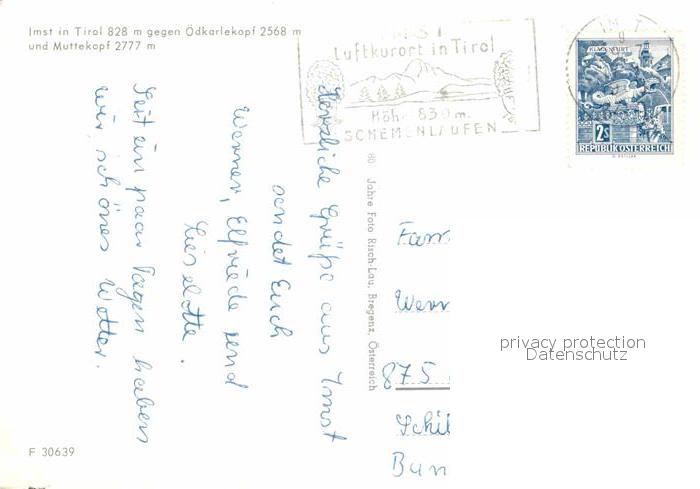 Imst in Tirol 828 m gegen Ödkarlekopf 2568 m
und Muttekopf 2777 m
IMST
Luftkurort in Tirol
Höhe 830 m.
SCHEMENLAUFEN
KLAGENFURT
2S
REPUBLIK ÖSTERREICH
Herzliche Grüße aus Imst
sendet Euch
Werner, Elfriede und
Lieselotte.
Seit ein paar Tagen haben
wir schönes Wetter.
80 Jahre Foto Risch-Lau, Bregenz, Österreich
Fam
Wern
875
Schil
Bun
privacy protection
Datenschutz
F 30639